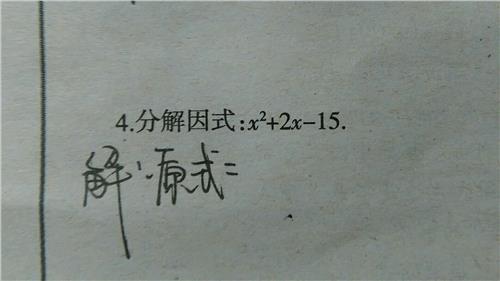 4.分解因式:x²+2x-15.
解:原式=